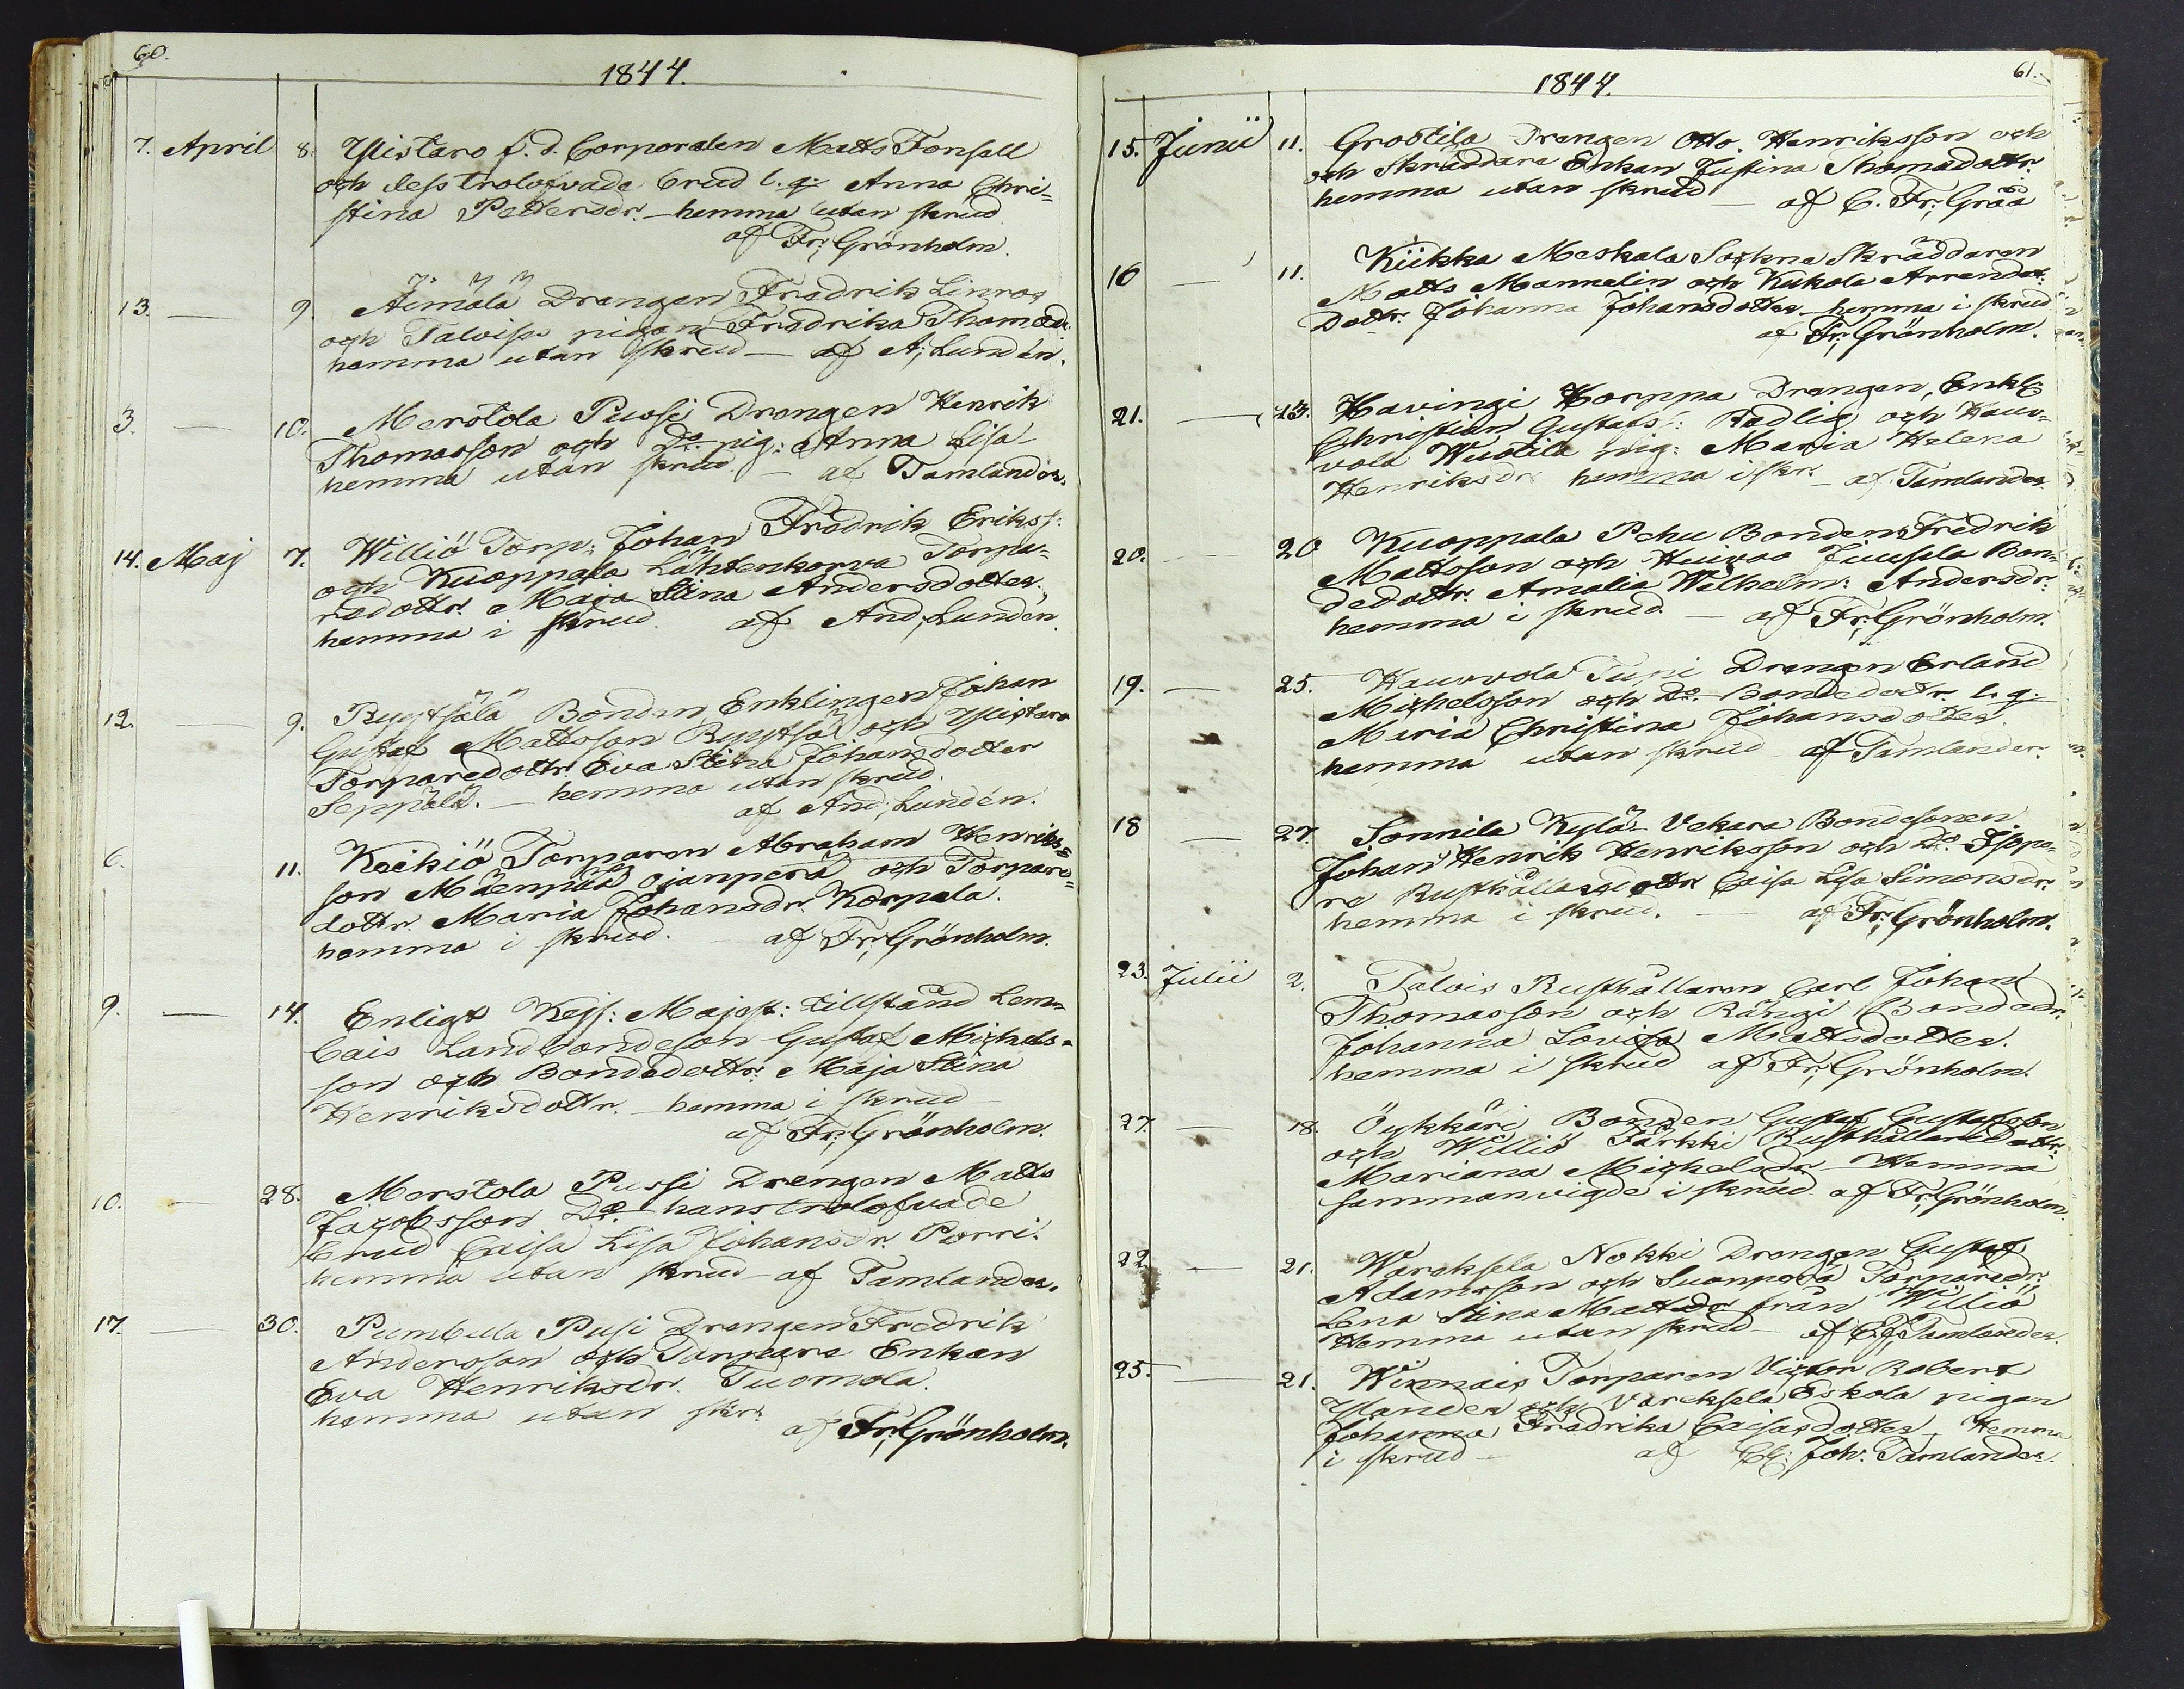 60.
1844.
7. April 8. Ylistaro f. d. Corporalen Matts Fonsell
och dess trolofvade brud b. q: Anna Chri=
stina Pettersdr. - hemma utan skrud
af Fr; Grönholm.
13. — 9. Äimälä Drengen Fredrik Linros
och Talvis pigan Fredrika Thomasdr.
hemma utan skrud — af A; Lundén.
3. — 10. Merstola Pussi Drengen Henrik
Thomasson och Do. pig: Anna Lisa
hemma utan skrud. — af Tamlander.
14. Maj 7. Williö Torp: Johan Fredrik Erikss:
och Kuoppala Lähtenkorva Torpa=
redottr. Maja Stina Andersdotter.
hemma i skrud. af And; Lundén.
12. — 9. Ryytsälä Bonden Enklingen Johan
Gustaf Mattsson Ryytsä och Ylistaro
Torparedottr. Eva Stina Johansdotter
Seppälä. — hemma utan skrud.
af And; Lundén.
6. 11. Keikiö Torparen Abraham Henriks=
son Mäenpää Ojanperä och Torpare=
dottr. Maria Johansdr. Korpela.
hemma i skrud. — af Fr; Grönholm.
9. — 14. Enligt Kejs: Majest: tillstånd Lem=
Cais Landbondeson Gustaf Michels=
son och Bondedottr: Maja Stina
Henriksdottr. — hemma i skrud —
af Fr; Grönholm.
10. — 28. Merstola Pussi Drengen Matts
Jacobsson Do. hans trolofvade
brud Caisa Lisa Johansdr. Porri.
hemma utan skrud — af Tamlander.
17. — 30. Pumbula Pusi Drengen Fredrik
Andersson och Torpare Enkan
Eva Henriksdr. Tuomola.
hemma utan skr:
af Fr; Grönholm.
1844. 61.
15. Junii 11. Grootila Drengen Otto Henriksson och
och Skräddare Enkan Justina Thomasdottr.
hemma utan skrud — af C. Fr; Gråå
16 — 11. Kiikka Meskala Sockne Skräddaren
Matts Mannelin och Kukola Arrendat:
Dottr. Johanna Johansdotter. hemma i skrud
af Fr; Grönholm.
21. — 13. Havingi Korppa Drengen, Enkl:
Christian Gustafss: Stadlig och Hauv=
vola Wuotila pig: Maria Helena
Henriksdr. hemma i skr. — af Tamlander
20. — 20 Kuoppala Pehu Bonden Fredrik
Mattsson och Huivoo Juusela Bon=
dedottr. Amalia Wilhelm: Andersdr.
hemma i skrud. — af Fr; Grönholm.
19. — 25. Hauvvola Tupi Drengen Erland
Michelsson och Do. Bondedottr. b. q.
Maria Christina Johansdotter.
hemma utan skrud af Tamlander.
18 — 27. Sonnila Kylä-Vekara Bondesonen
Johan Henrik Henriksson och Do. Isope=
re Rusthållaredottr. Caisa Lisa Simonsdr.
hemma i skrud. — af Fr; Grönholm.
23. Julii 2. Talvis Rusthållaren Carl Johan
Thomasson och Rängi Bondedr.
Johanna Lovisa Mattsdotter.
hemma i skrud af Fr; Grönholm.
27. — 18. Öykkäri Bonden Gustaf Gustafsson
och Williö Pärkki Rusthållaredottr:
Mariana Michelsdr — Hemma
sammanvigde i skrud. af Fr; Grönholm.
22. — 21. Wareksela Nokki Drengen Gustaf
Adamsson och Suonperä Torparedr.
Lena Stina Mattsdr från Williö
Hemma utan skrud — af C. J. Tamlander.
25. — 21. Winnais Torparen Victor Robert
Ylander och Vareksela Eskola pigan
Johanna Fredrika Caisasdotter — Hemma
i skrud — af C. G: Joh. Tamlander.